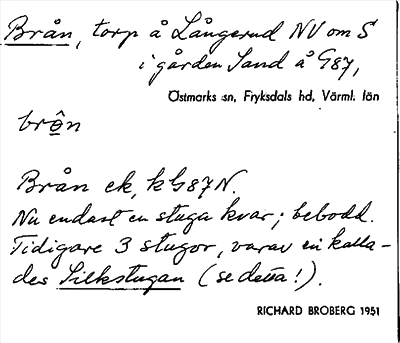 Brån, torp å Långerud NV om S
i gården Sand å G87,
Östmarks sn, Fryksdals hd, Värml. län
brộn
Brån ek, kG87N.
Nu endast en stuga kvar; bebodd.
Tidigare 3 stugor, varav en kalla-
des Silkstugan (se detta!).
RICHARD BROBERG 1951